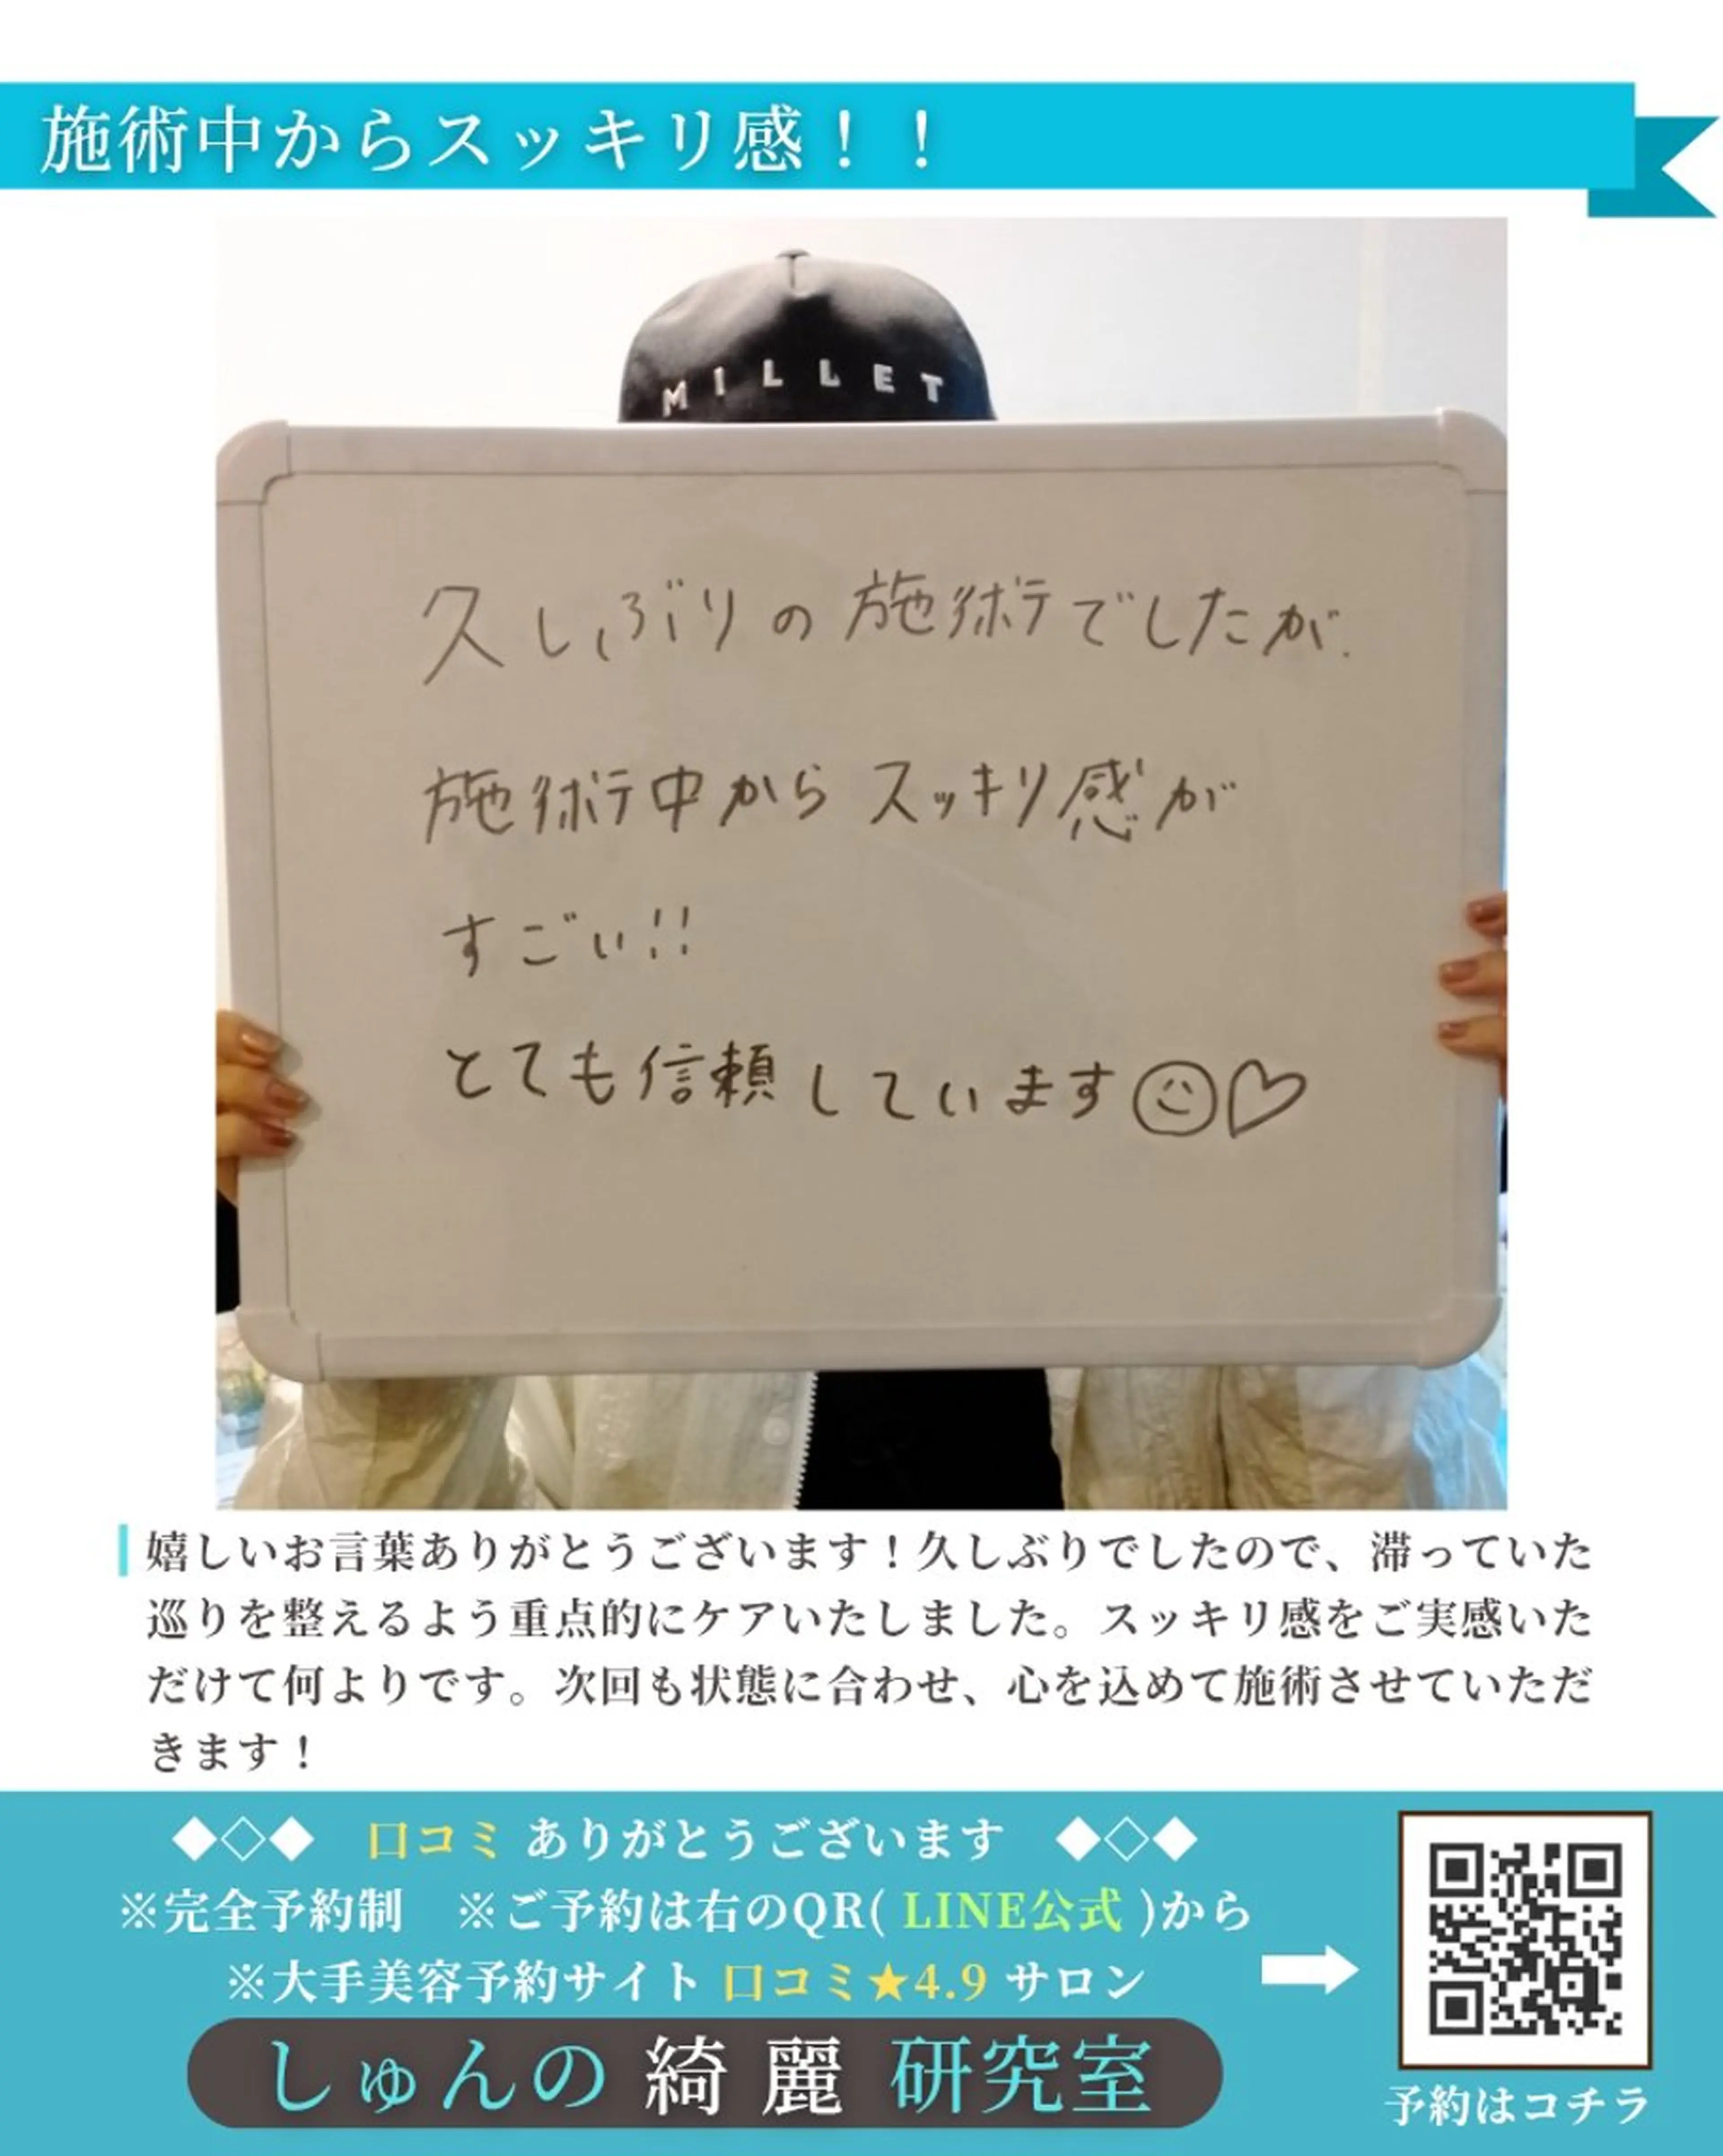 施術中からスッキリ感！！
MILLET
久しぶりの施術でしたが.
施術中からスッキリ感が
すごい!!
とても信頼しています
嬉しいお言葉ありがとうございます！久しぶりでしたので、滞っていた
巡りを整えるよう重点的にケアいたしました。スッキリ感をご実感いた
だけて何よりです。次回も状態に合わせ、心を込めて施術させていただ
きます！
◆◇◆ 口コミ ありがとうございます ◆◇◆
※完全予約制 ※ご予約は右のQR( LINE公式 )から
※大手美容予約サイト 口コミ★4.9 サロン
しゅんの 綺麗 研究室
予約はコチラ